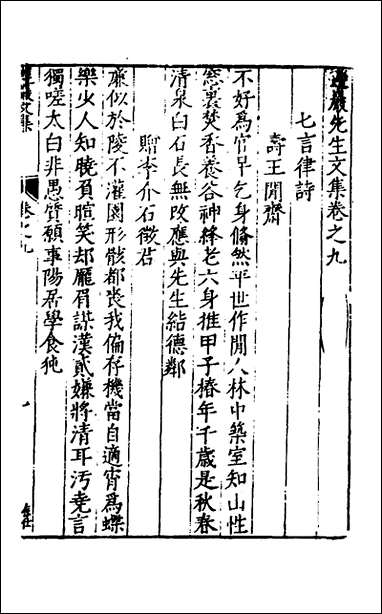 遵巖先生文集卷之九
七言律詩
壽王閒齋
不好為官早乞身翛然平世作閒人林中築室知山性
窓裏焚香養谷神絳老六身推甲子椿年千歲是秋春
清泉白石長無改應與先生結德鄰
贈李介石徵君
廉似於陵不灌園形骸都喪我偏存機當自適宵為蝶
樂少人知曉負暄笑却龎眉謀漢貳嫌將清耳汚堯言
獨嗟太白非愚質願事陽居學食㹠
遵巖文集
卷之九
一